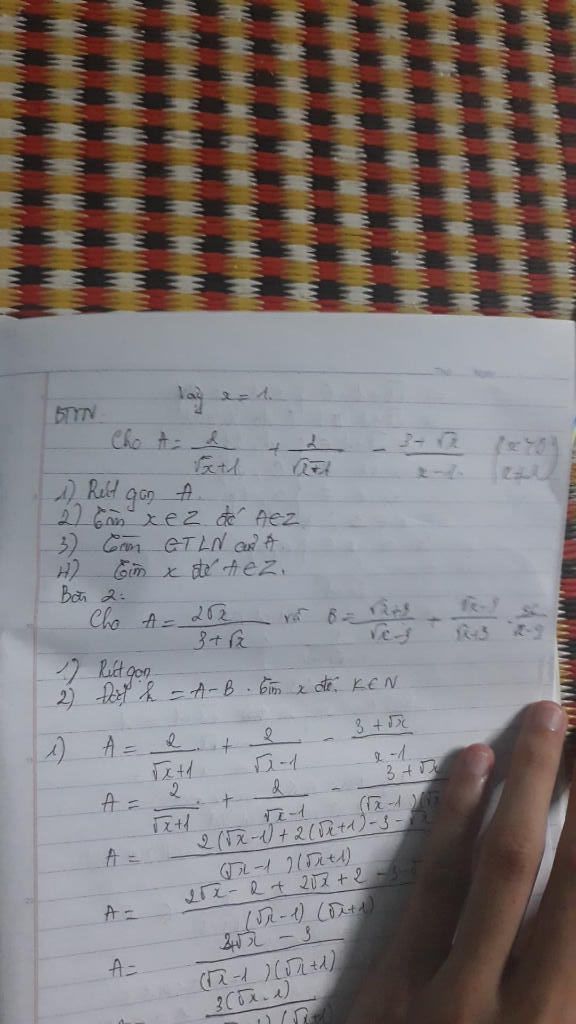 Vậy x = 1.
BTVN
Cho A = 2/(√x+1) + 2/(√x+1) - (3+√x)/(x-1)
1) Rút gọn A.
2) Tìm x∈Z để A∈Z
3) Tìm GTLN của A
4) Tìm x để A∈Z.
Bài 2:
Cho A = 2√x/(3+√x) và B = (√x+3)/(√x-3) + (√x-3)/(√x+3)
1) Rút gọn
2) Đặt K = A-B. Tìm x để K∈N
1) A = 2/(√x+1) + 2/(√x-1) - (3+√x)/(x-1)
A = 2/(√x+1) + 2/(√x-1) - (3+√x)/(√x-1)(√x
A = 2(√x-1)+2(√x+1)-3-√x/(√x-1)(√x+1)
A = 2√x-2+2√x+2-3-√/(√x-1)(√x+1)
A = 3√x-3/(√x-1)(√x+1)
3(√x-1)